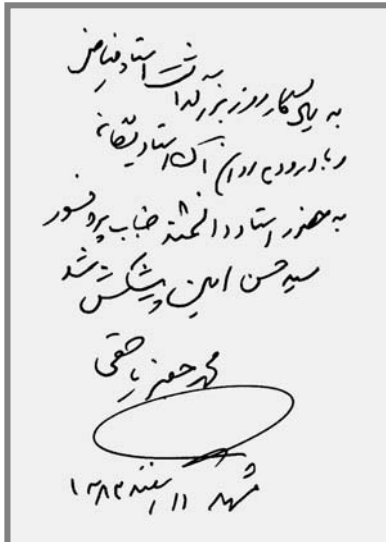 به یادگار روز بزرگداشت استاد فیاض
و با درود به روان آن استاد یگانه
به حضور استاد دانشمند جناب پروفسور
سید حسن امین پیشکش شد
محمد جعفر یاحقی
مشهد ۱۱ اسفند ۱۳۸۳